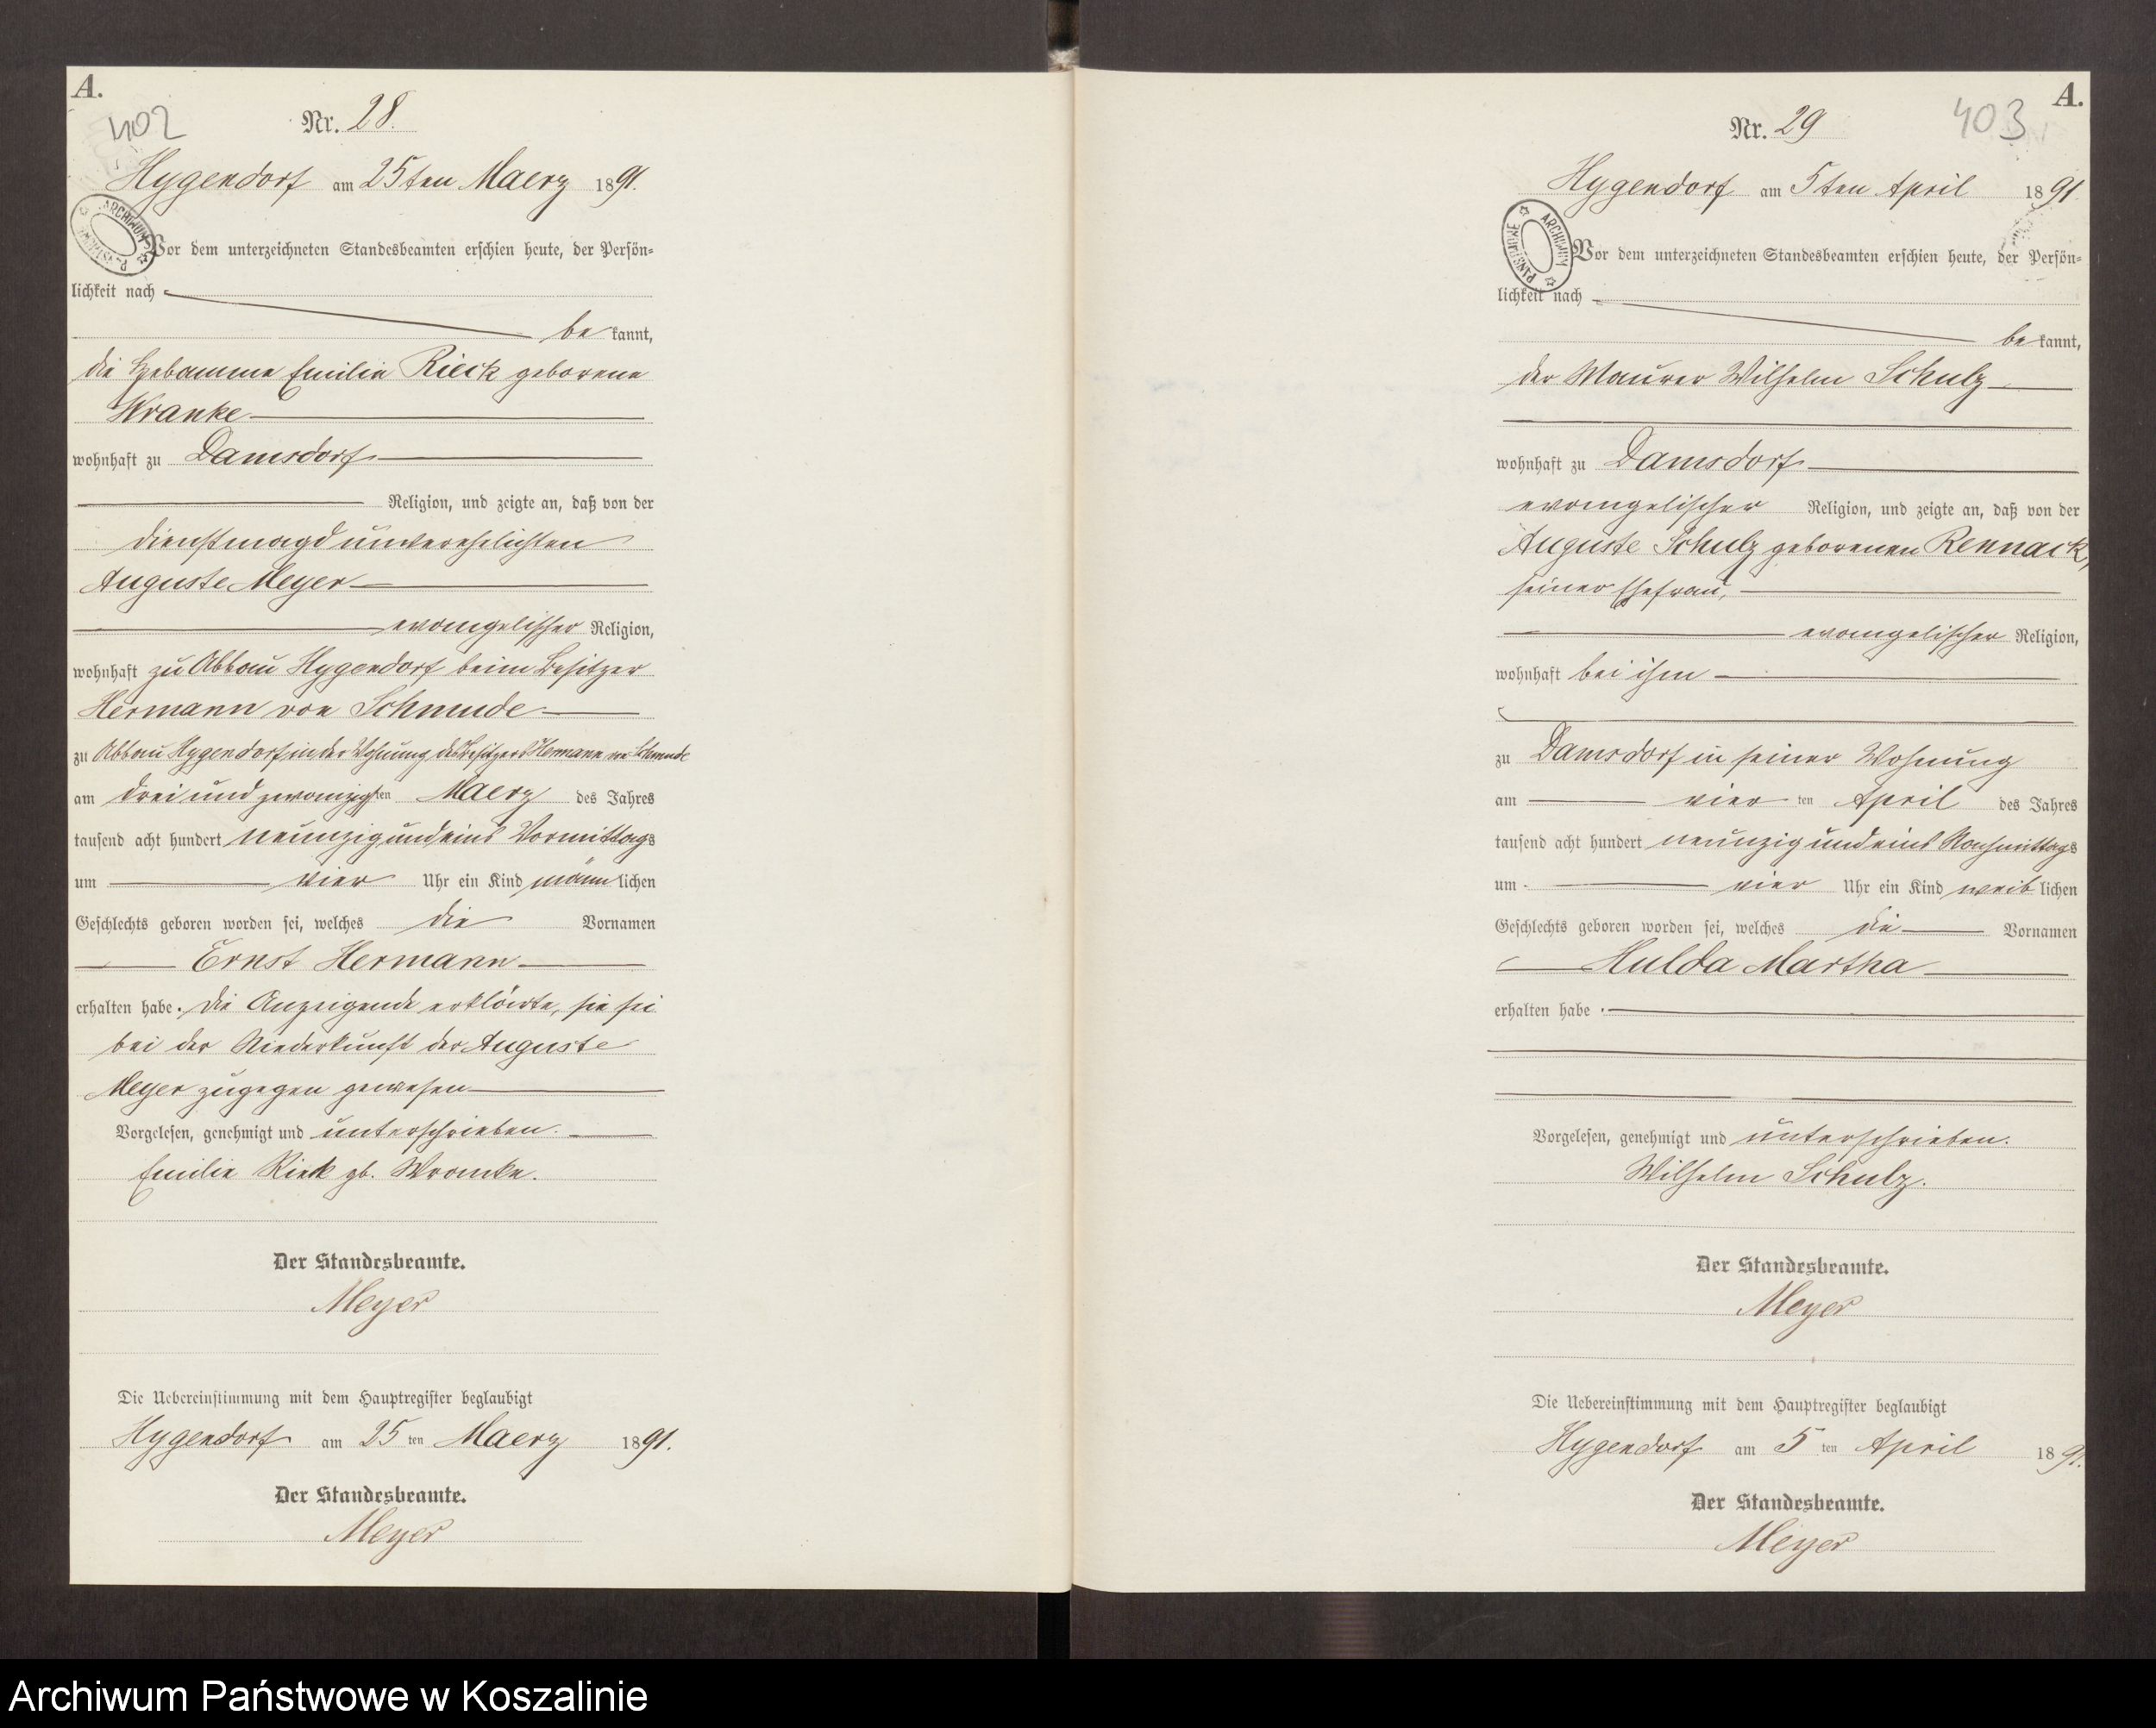 A.
402
Nr. 28.
Hygendorf am 25ten Maerz 1891.
Vor dem unterzeichneten Standesbeamten erschien heute, der Persön-
lichkeit nach
be kannt,
die Hebamme Emilie Rieck geborene
Wranke
wohnhaft zu Damsdorf
Religion, und zeigte an, daß von der
Dienstmagd unverehelichten
Auguste Meyer
evangelischer Religion,
wohnhaft zu Abbau Hygendorf beim Besitzer
Hermann von Schmude
zu Abbau Hygendorf in der Wohnung des Besitzers Hermann von Schmude
am drei und zwanzigsten Maerz des Jahres
tausend acht hundert neunzig und eins Vormittags
um vier Uhr ein Kind männlichen
Geschlechts geboren worden sei, welches die Vornamen
Ernst Hermann
erhalten habe. Die Anzeigende erklärte, sie sei
bei der Niederkunft der Auguste
Meyer zugegen gewesen
Vorgelesen, genehmigt und unterschrieben.
Emilie Rieck gb. Wranke.
Der Standesbeamte.
Meyer
Die Uebereinstimmung mit dem Hauptregister beglaubigt
Hygendorf am 25 ten Maerz 1891.
Der Standesbeamte.
Meyer
A.
403
Nr. 29
Hygendorf am 5ten April 1891.
ARCHIWUM PAŃSTWOWE
Vor dem unterzeichneten Standesbeamten erschien heute, der Persön-
lichkeit nach
be kannt,
der Maurer Wilhelm Schulz
wohnhaft zu Damsdorf
evangelischer Religion, und zeigte an, daß von der
Auguste Schulz geborenen Rennack,
seiner Ehefrau,
evangelischer Religion,
wohnhaft bei ihm
zu Damsdorf in seiner Wohnung
am vier ten April des Jahres
tausend acht hundert neunzig und eins Nachmittags
um vier Uhr ein Kind weib lichen
Geschlechts geboren worden sei, welches die Vornamen
Hulda Martha
erhalten habe.
Vorgelesen, genehmigt und unterschrieben.
Wilhelm Schulz.
Der Standesbeamte.
Meyer
Die Uebereinstimmung mit dem Hauptregister beglaubigt
Hygendorf am 5 ten April 1891.
Der Standesbeamte.
Meyer
Archiwum Państwowe w Koszalinie